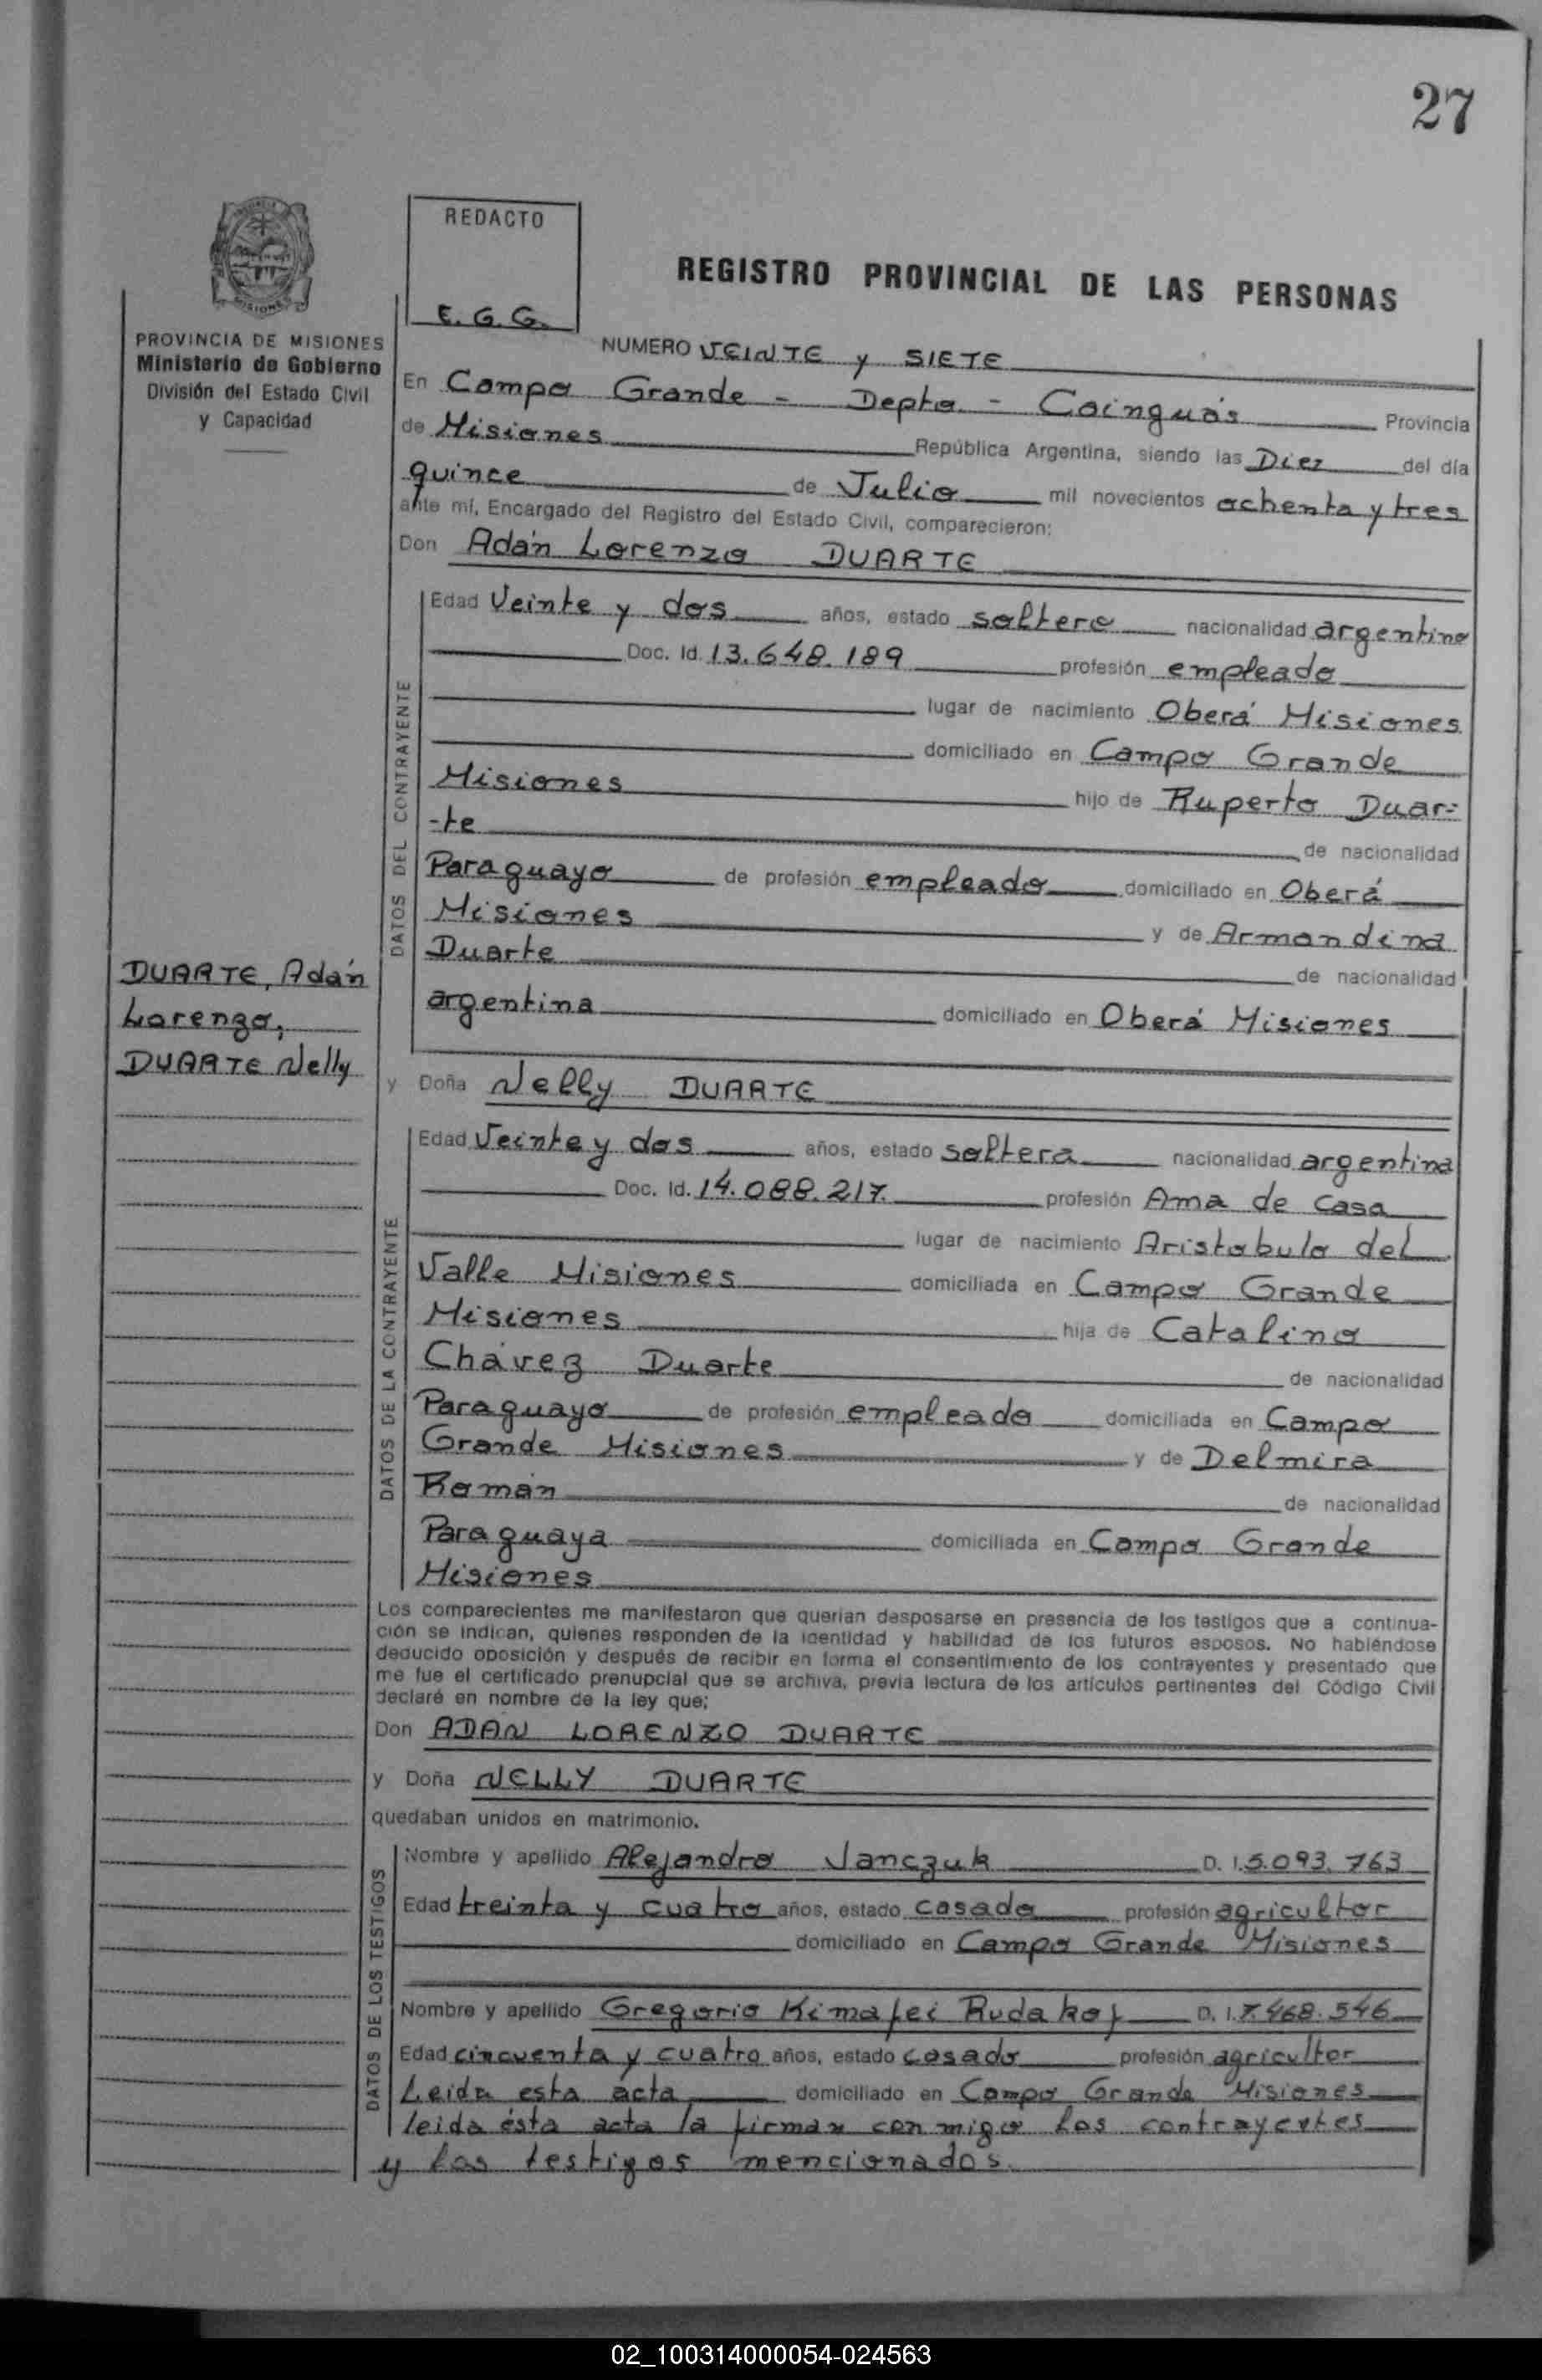 27
REDACTO
E. G. G.
REGISTRO PROVINCIAL DE LAS PERSONAS
MISIONES
PROVINCIA DE MISIONES
Ministerio de Gobierno
División del Estado Civil
y Capacidad
NUMERO VEINTE y SIETE
En Campo Grande - Depto - Cainguás Provincia
de Misiones República Argentina, siendo las Diez del día
quince de Julio mil novecientos ochenta y tres
ante mí, Encargado del Registro del Estado Civil, comparecieron:
Don Adán Lorenzo DUARTE
DATOS DEL CONTRAYENTE
Edad Veinte y dos años, estado soltero nacionalidad argentino
Doc. Id. 13.648.189 profesión empleado
lugar de nacimiento Oberá Misiones
domiciliado en Campo Grande
Misiones hijo de Ruperto Duar-
-te de nacionalidad
Paraguayo de profesión empleado domiciliado en Oberá
Misiones y de Armandina
Duarte de nacionalidad
argentina domiciliado en Oberá Misiones
DUARTE, Adán
Lorenzo;
DUARTE Nelly
y Doña Nelly DUARTE
DATOS DE LA CONTRAYENTE
Edad Veinte y dos años, estado soltera nacionalidad argentina
Doc. Id. 14.088.217. profesión Ama de casa
lugar de nacimiento Aristobulo del
Valle Misiones domiciliada en Campo Grande
Misiones hija de Catalino
Chávez Duarte de nacionalidad
Paraguayo de profesión empleado domiciliada en Campo
Grande Misiones y de Delmira
Román de nacionalidad
Paraguaya domiciliada en Campo Grande
Misiones
Los comparecientes me manifestaron que querían desposarse en presencia de los testigos que a continua-
ción se indican, quienes responden de la identidad y habilidad de los futuros esposos. No habiéndose
deducido oposición y después de recibir en forma el consentimiento de los contrayentes y presentado que
me fue el certificado prenupcial que se archiva, previa lectura de los artículos pertinentes del Código Civil
declaré en nombre de la ley que;
Don ADAN LORENZO DUARTE
y Doña NELLY DUARTE
quedaban unidos en matrimonio.
DATOS DE LOS TESTIGOS
Nombre y apellido Alejandro Janczuk D. I. 5.093.763
Edad treinta y cuatro años, estado casado profesión agricultor
domiciliado en Campo Grande Misiones
Nombre y apellido Gregorio Kimafei Rudakof D. I. 7.468.546
Edad cincuenta y cuatro años, estado casado profesión agricultor
Leida esta acta domiciliado en Campo Grande Misiones
leida ésta acta la firman conmigo los contrayentes
y los testigos mencionados.
02_100314000054-024563